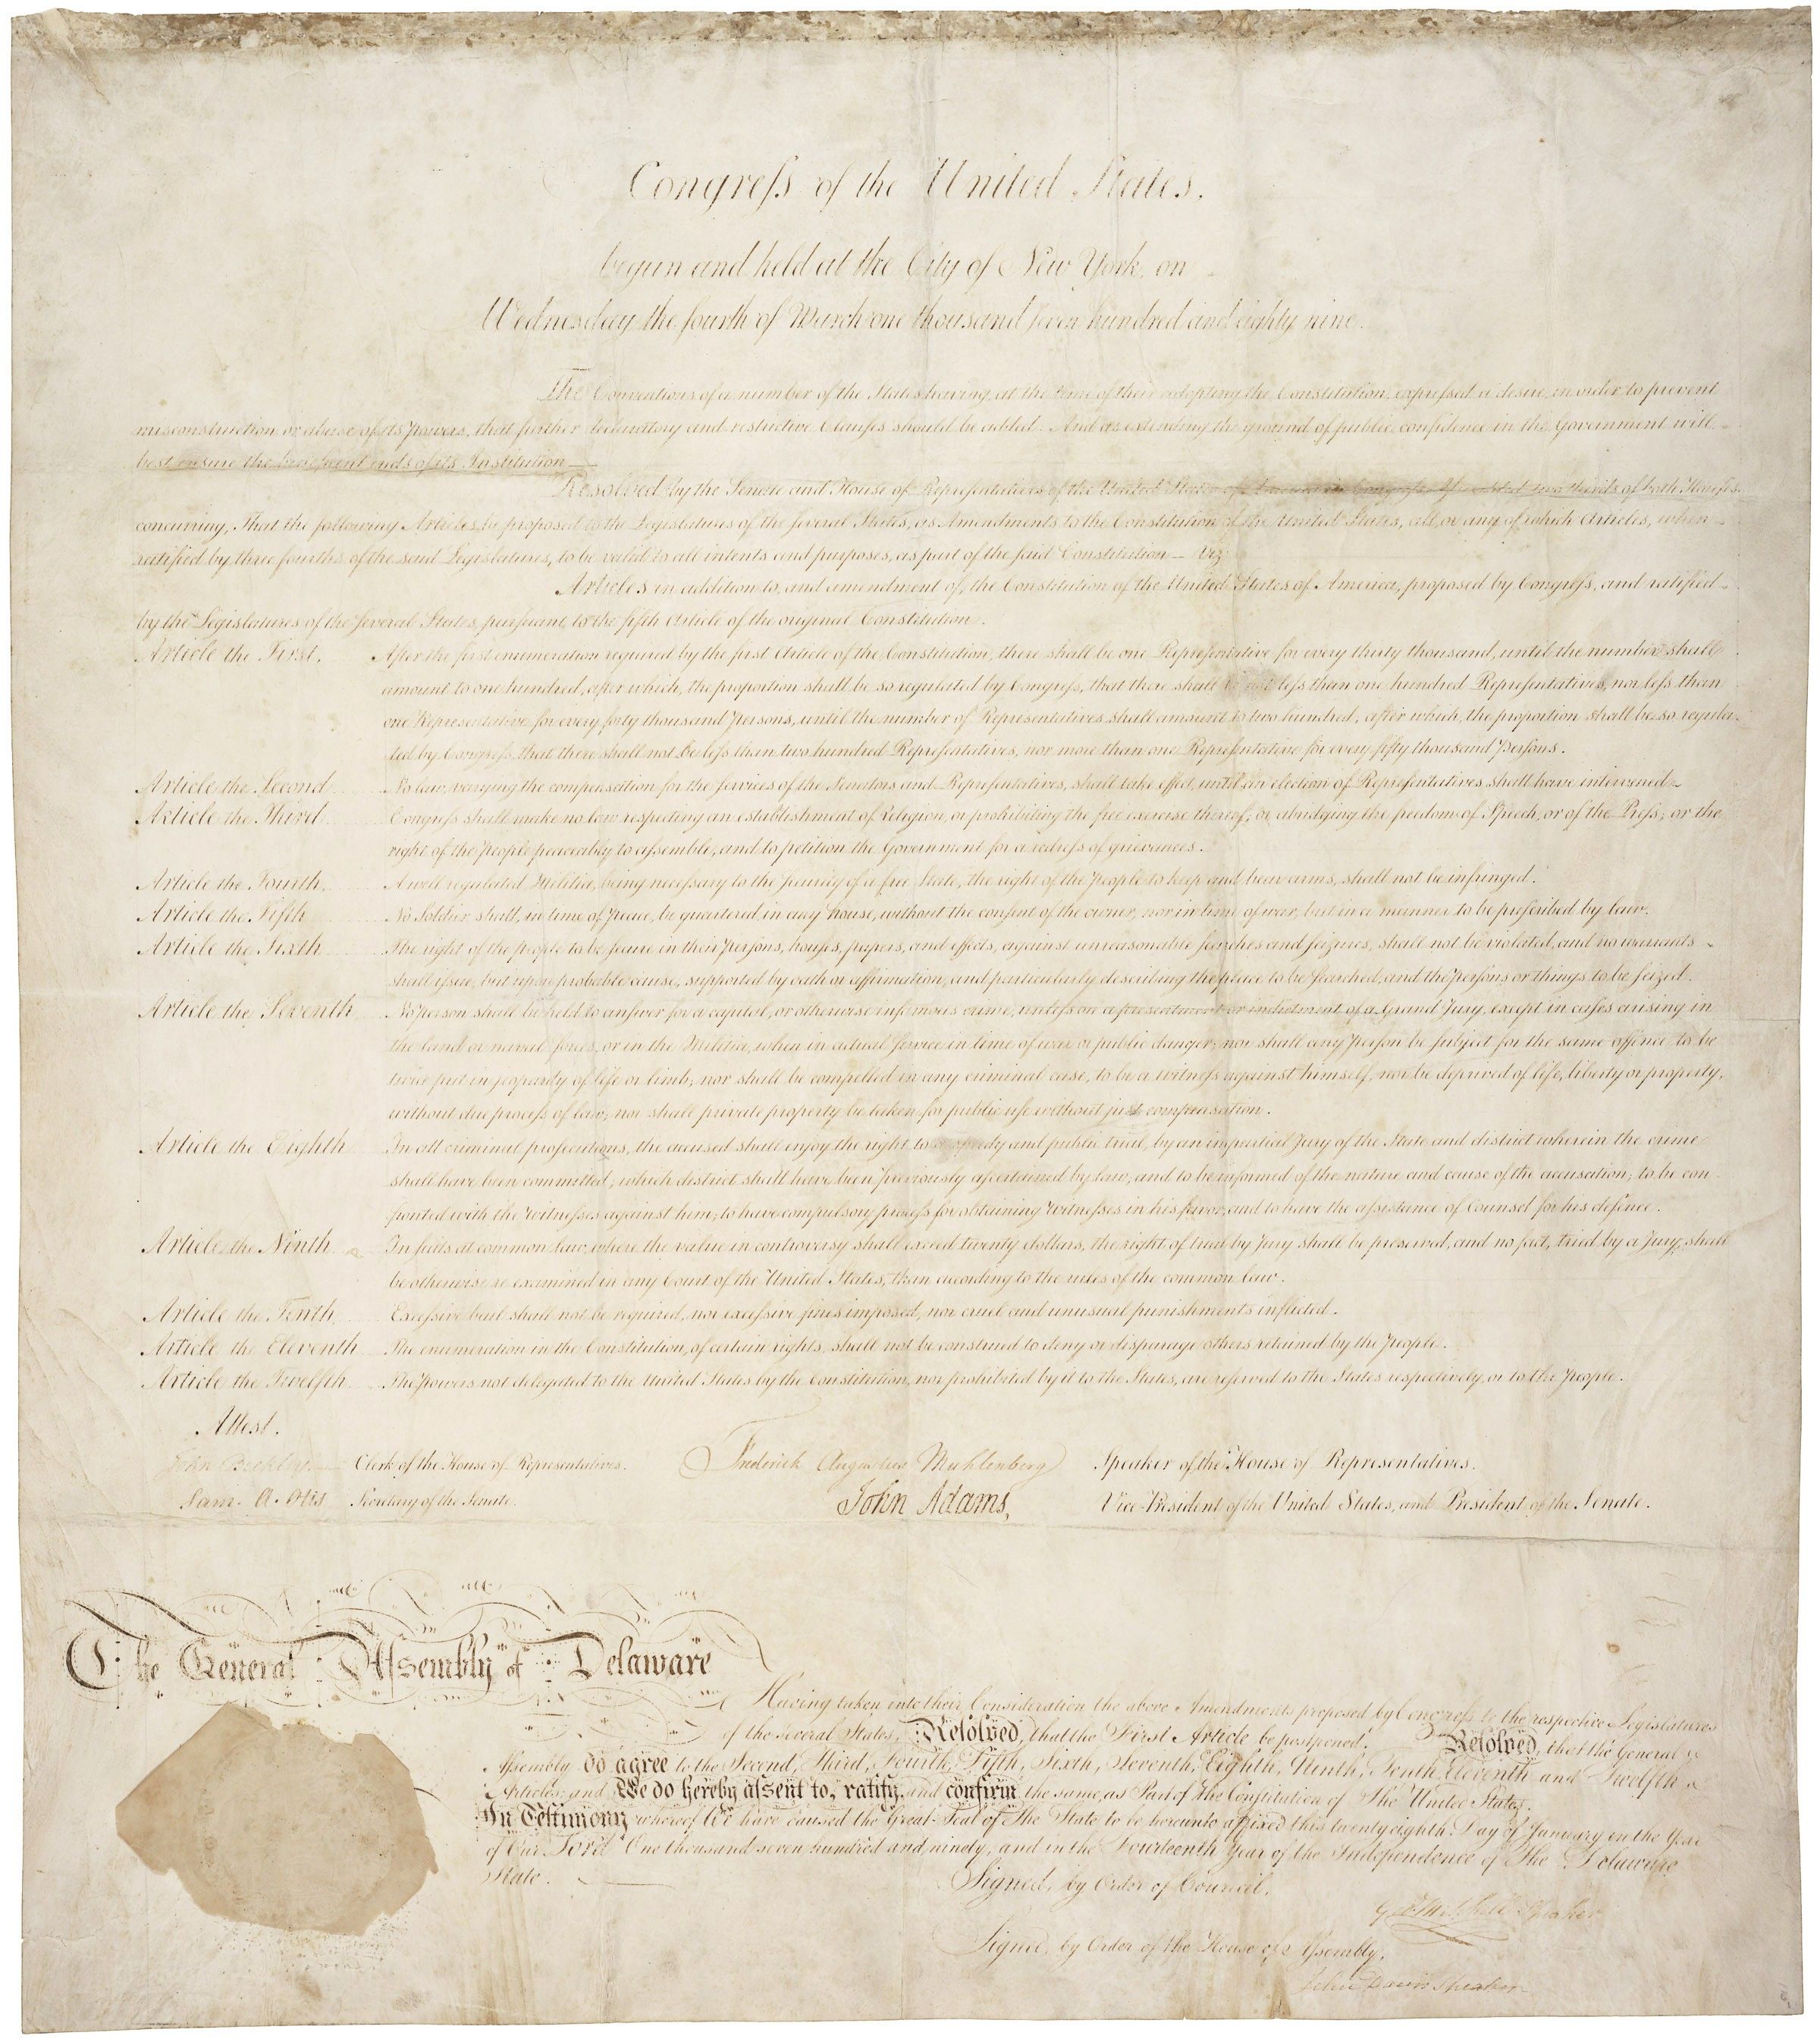 Congreſs of the United States.
begun and held at the City of New York, on
Wednesday the fourth of March one thousand seven hundred and eighty nine.
The Conventions of a number of the States having, at the time of their adopting the Constitution, expreſsed a desire, in order to prevent
misconstruction or abuse of its powers, that further declaratory and restrictive Clauses should be added: And as extending the ground of public confidence in the Government will
best ensure the beneficent ends of its Institution
Resolved by the Senate and House of Representatives of the United States of America in Congreſs Aſsembled, two thirds of both Houses
concurring, That the following Articles be proposed to the Legislatures of the several States, as Amendments to the Constitution of the United States, all, or any of which Articles, when
ratified by three fourths of the said Legislatures, to be valid to all intents and purposes, as part of the said Constitution – Viz:
Articles in addition to, and amendment of, the Constitution of the United States of America, proposed by Congreſs, and ratified
by the Legislatures of the several States, pursuant to the fifth Article of the original Constitution.
Article the First. After the first enumeration required by the first Article of the Constitution, there shall be one Representative for every thirty thousand, until the number shall
amount to one hundred, after which, the proportion shall be so regulated by Congreſs, that there shall be not leſs than one hundred Representatives, nor leſs than
one Representative for every forty thousand Persons, until the number of Representatives shall amount to two hundred, after which, the proportion shall be so regula-
ted by Congreſs, that there shall not be leſs than two hundred Representatives, nor more than one Representative for every fifty thousand Persons.
Article the Second No law, varying the compensation for the services of the Senators and Representatives, shall take effect, until an election of Representatives shall have intervened
Article the Third Congreſs shall make no law respecting an establishment of Religion, or prohibiting the free exercise thereof; or abridging the freedom of Speech, or of the Preſs; or the
right of the People peaceably to aſsemble, and to petition the Government for a redreſs of grievances.
Article the Fourth. A well regulated Militia, being neceſsary to the security of a free State, the right of the People to keep and bear arms, shall not be infringed.
Article the Fifth No Soldier shall, in time of Peace, be quartered, in any house, without the consent of the owner, nor in time of war, but in a manner to be prescribed by law.
Article the Sixth The right of the People to be secure in their Persons, houses, papers, and effects, against unreasonable searches and seizures, shall not be violated, and no warrants
shall iſsue, but upon probable cause, supported by oath or affirmation, and particularly describing the place to be searched, and the Persons or things to be seized.
Article the Seventh No person shall be held to answer for a capital, or otherwise infamous crime, unleſs on a presentment or indictment of a Grand Jury, except in cases arising in
the land or naval forces, or in the Militia, when in actual service in time of war or public danger; nor shall any Person be subject for the same offence to be
twice put in jeopardy of life or limb; nor shall be compelled in any criminal case, to be a witneſs against himself, nor be deprived of life, liberty or property,
without due proceſs of law; nor shall private property be taken for public use without just compensation.
Article the Eighth In all criminal prosecutions, the accused shall enjoy the right to a speedy and public trial, by an impartial Jury of the State and district wherein the crime
shall have been committed; which district shall have been previously ascertained by law, and to be informed of the nature and cause of the accusation; to be con
fronted with the Witneſses against him; to have compulsory proceſs for obtaining Witneſses in his favor, and to have the aſsistance of Counsel for his defence.
Article the Ninth In suits at common law, where the value in controversy shall exceed twenty dollars, the right of trial by Jury shall be preserved, and no fact, tried by a Jury, shall
be otherwise re-examined in any Court of the United States, than according to the rules of the common law.
Article the Tenth Exceſsive bail shall not be required, nor exceſsive fines imposed, nor cruel and unusual punishments inflicted.
Article the Eleventh The enumeration in the Constitution, of certain rights, shall not be construed to deny or disparage others retained by the People.
Article the Twelfth The Powers not delegated to the United States by the Constitution, nor prohibited by it to the States, are reserved to the States respectively, or to the People.
Attest.
John Beckley Clerk of the House of Representatives. Frederick Augustus Muhlenberg Speaker of the House of Representatives.
Sam. A. Otis Secretary of the Senate. John Adams, Vice-President of the United States, and President of the Senate.
The General Aſsembly of Delaware
Having taken into their Consideration the above Amendments proposed by Congreſs to the respective Legislatures
of the several States, Resolved, that the First Article be postponed. Resolved, that the General
Aſsembly do agree to the Second, Third, Fourth, Fifth, Sixth, Seventh, Eighth, Ninth, Tenth, Eleventh and Twelfth
Articles; and We do hereby aſsent to, ratify, and confirm the same, as Part of the Constitution of The United States.
In Testimony whereof We have caused the Great-Seal of The State to be hereunto affixed this twenty eighth Day of January in the Year
of Our Lord One thousand seven hundred and ninety, and in the Fourteenth Year of the Independence of The Delaware
State.
Signed, by Order of Council,
Geo Mitchell Speaker
Signed, by Order of the House of Aſsembly,
Jehu Davis Speaker